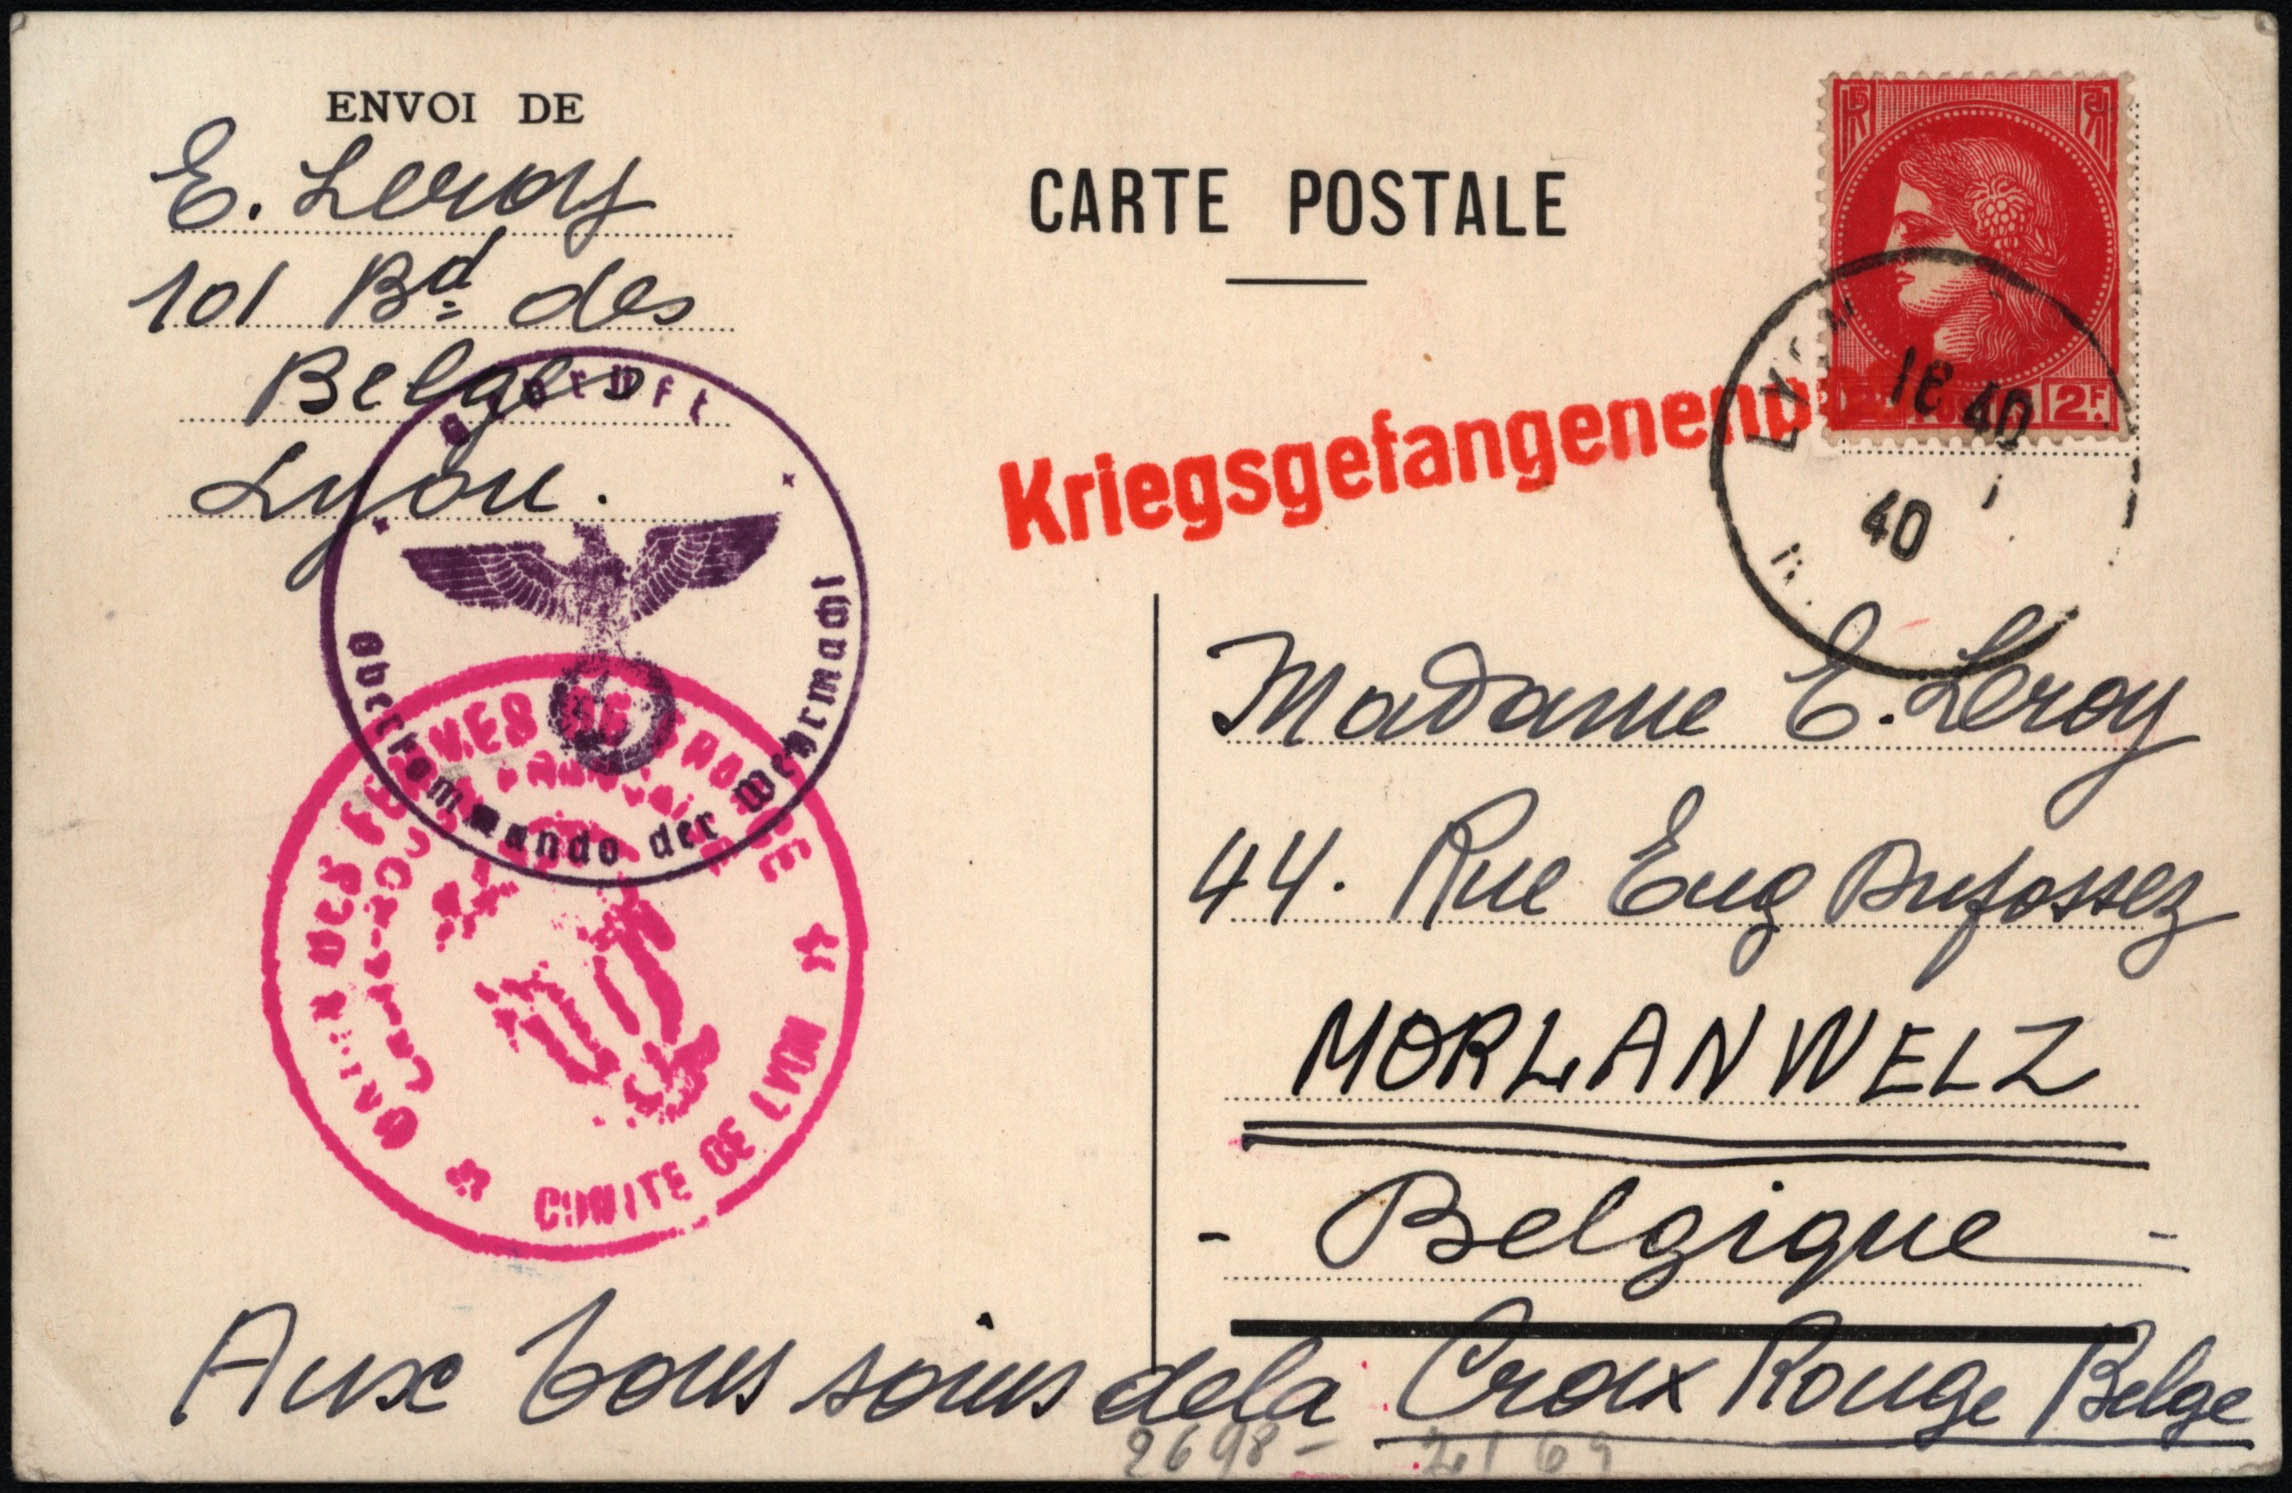 ENVOI DE
E. Leroy
101 Bd des
Belges
Lyon.
CARTE POSTALE
2F.
LYON
18 40
40
Kriegsgefangenenp
Geprüft
Oberkommando der Wehrmacht
DES FEMMES DE FRANCE
COMITE DE LYON
Madame E. Leroy
44. Rue Eug Dufossez
MORLANWELZ
- Belgique -
Aux bons soins de la Croix Rouge Belge
2698-